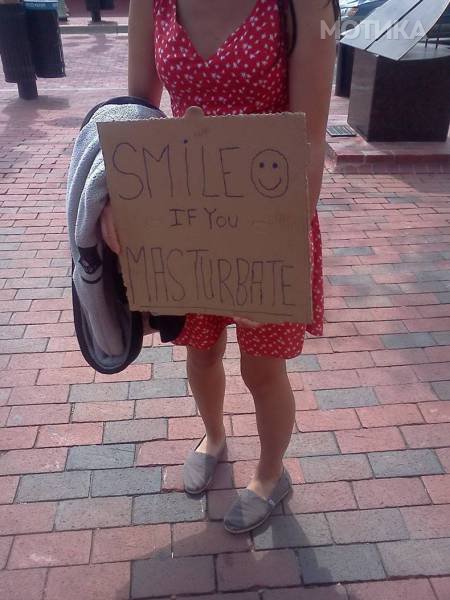 МОТИКА
SMILE
IF YOU
MASTURBATE